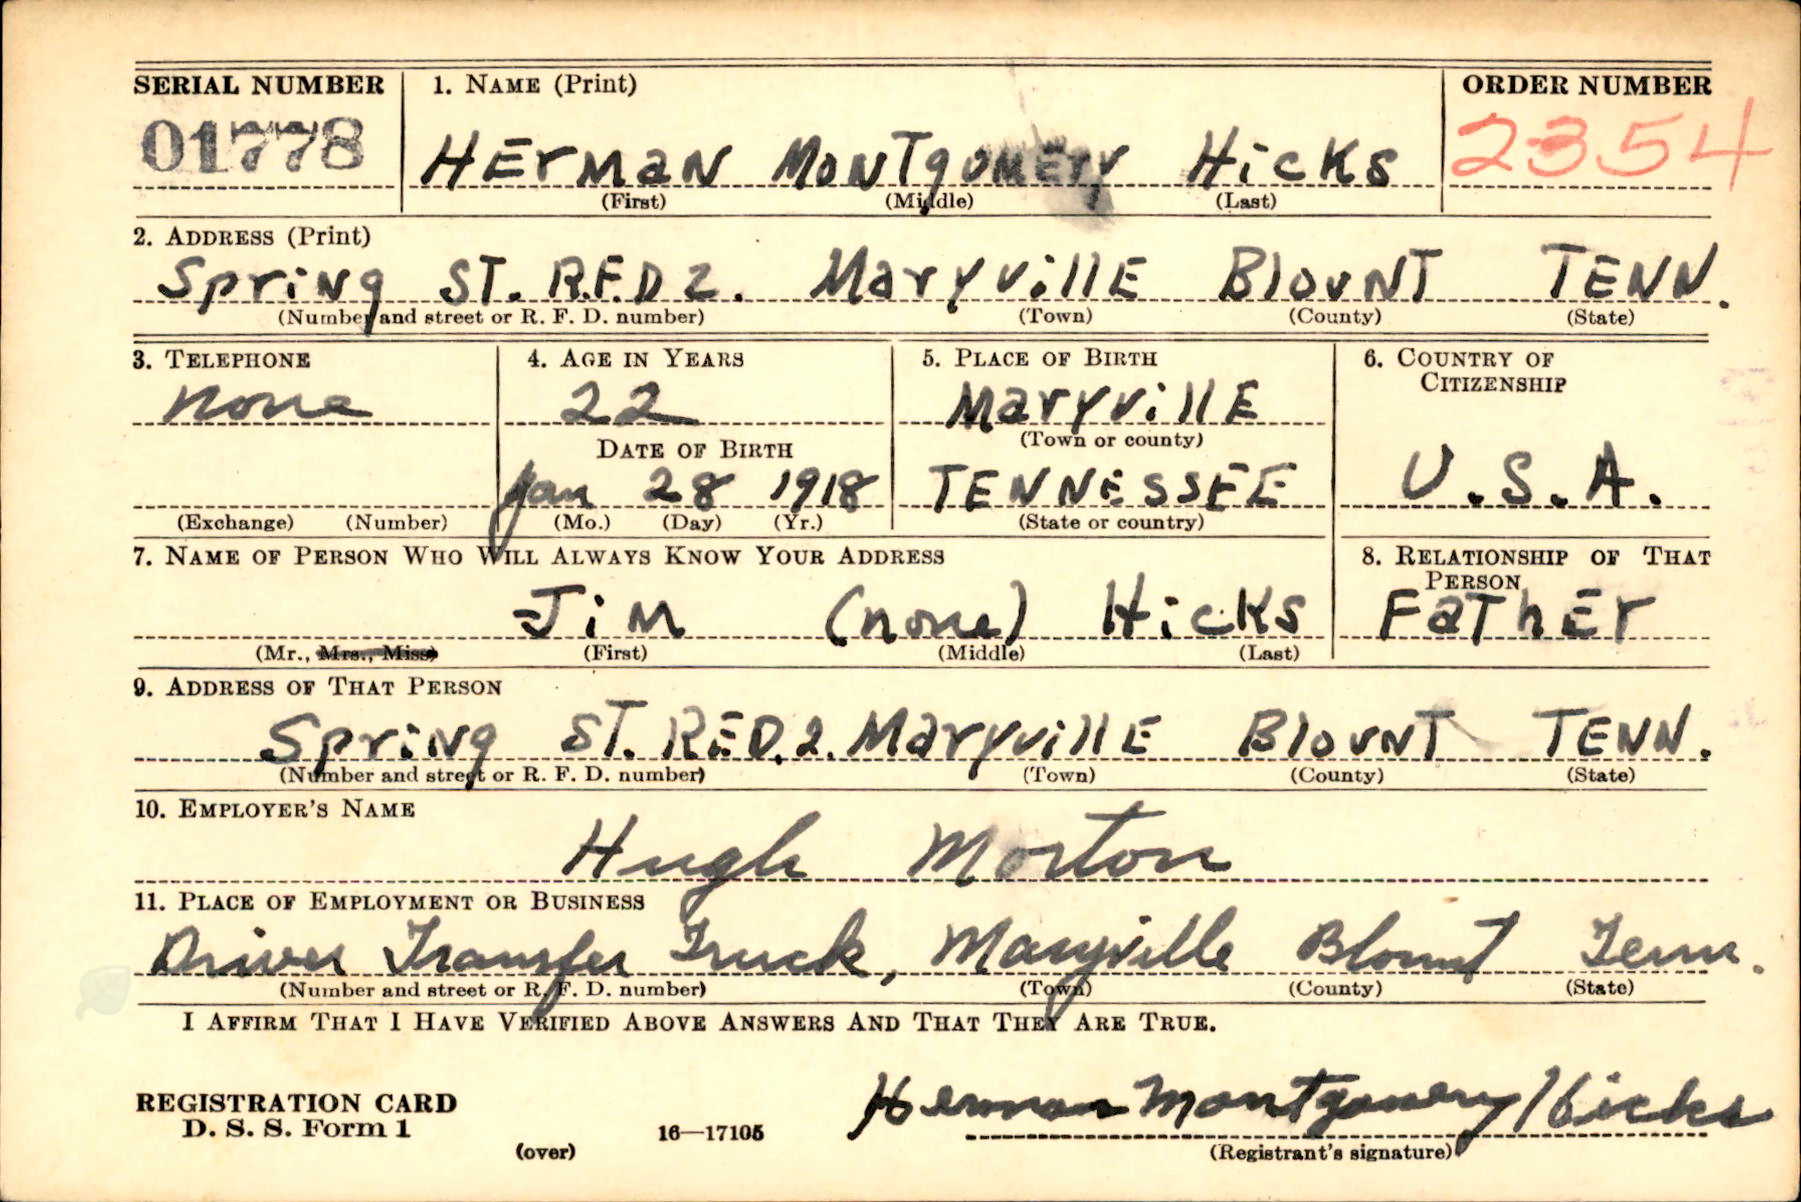 SERIAL NUMBER 1. NAME (Print) ORDER NUMBER
01778 HErmaN MoNTgomEry HicKs 2354
(First) (Middle) (Last)
2. ADDRESS (Print)
SpriNg ST. R.F.D 2. MaryvillE BlouNT TENN.
(Number and street or R. F. D. number) (Town) (County) (State)
3. TELEPHONE 4. AGE IN YEARS 5. PLACE OF BIRTH 6. COUNTRY OF CITIZENSHIP
None 22 MaryvillE
(Town or county)
DATE OF BIRTH
Jan 28 1918 TENNESSEE U.S.A.
(Exchange) (Number) (Mo.) (Day) (Yr.) (State or country)
7. NAME OF PERSON WHO WILL ALWAYS KNOW YOUR ADDRESS 8. RELATIONSHIP OF THAT PERSON
JiM (none) HicKS FaThEr
(Mr., Mrs., Miss) (First) (Middle) (Last)
9. ADDRESS OF THAT PERSON
SpriNg ST. R.F.D. 2. MaryvillE BlouNT TENN.
(Number and street or R. F. D. number) (Town) (County) (State)
10. EMPLOYER'S NAME
Hugh Morton
11. PLACE OF EMPLOYMENT OR BUSINESS
Driver Transfer Truck, Maryville Blount Tenn.
(Number and street or R. F. D. number) (Town) (County) (State)
I AFFIRM THAT I HAVE VERIFIED ABOVE ANSWERS AND THAT THEY ARE TRUE.
REGISTRATION CARD Herman Montgomery Hicks
D. S. S. Form 1 16—17105
(over) (Registrant's signature)